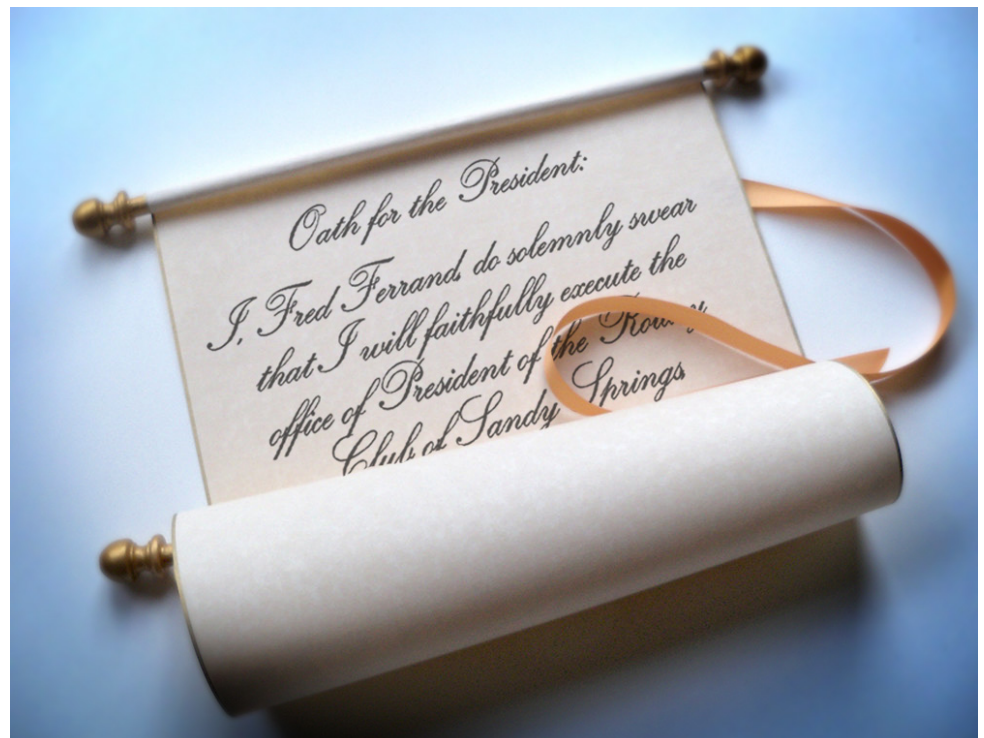 Oath for the President:
I, Fred Ferrand do solemnly swear
that I will faithfully execute the
office of President of the Rotary
Club of Sandy Springs